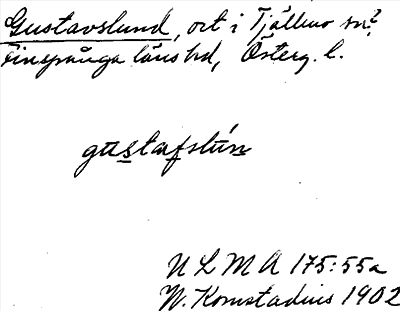 Gustavslund, ort i Tjällmo sn?
Finspånga läns hd, Österg. l.
gustafslún
U L M A 175:55a
W. Komstadius 1902